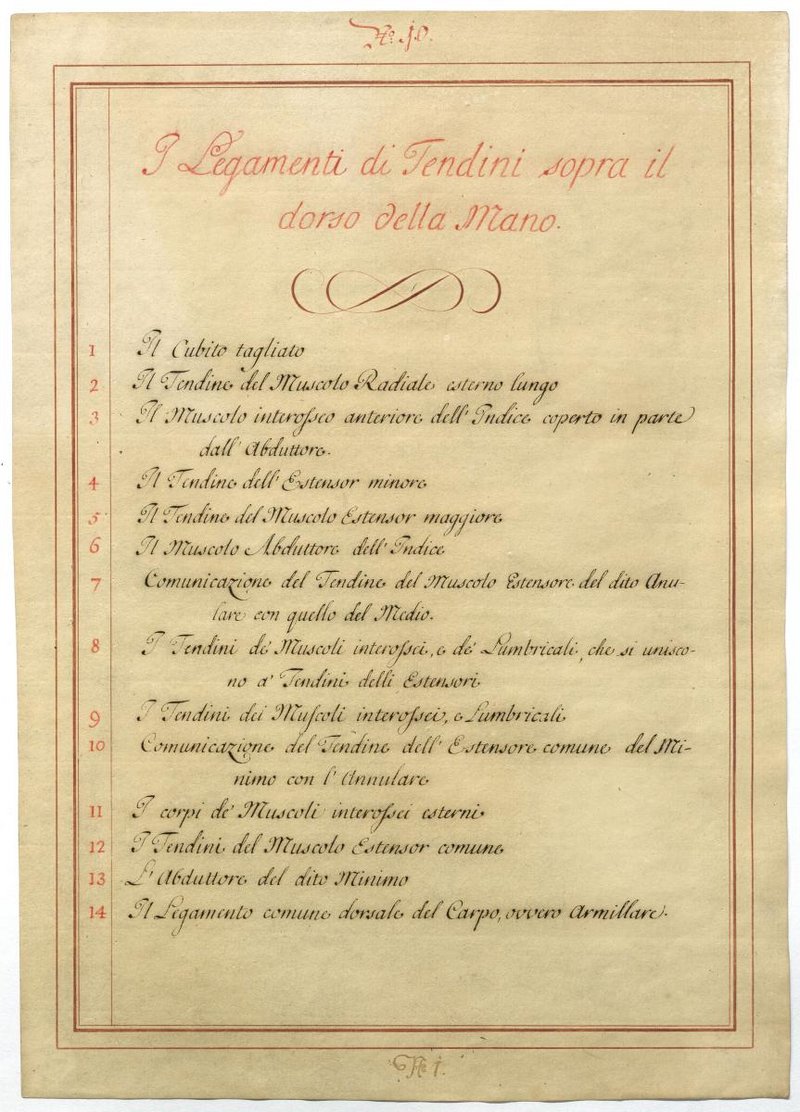 No. 10.
I Legamenti di Tendini sopra il
dorso della Mano.
1 Il Cubito tagliato
2 Il Tendine del Muscolo Radiale esterno lungo
3 Il Muscolo interosseo anteriore dell' Indice coperto in parte
dall' Abduttore.
4 Il Tendine dell' Estensor minore
5 Il Tendine del Muscolo Estensor maggiore
6 Il Muscolo Abduttore dell' Indice
7 Comunicazione del Tendine del Muscolo Estensore del dito Anu-
lare con quello del Medio.
8 I Tendini de' Muscoli interossei, e de' Lumbricali, che si unisco-
no a' Tendini delli Estensori
9 I Tendini dei Muscoli interossei, e Lumbricali
10 Comunicazione del Tendine dell' Estensore comune del Mi-
nimo con l' Annulare
11 I corpi de' Muscoli interossei esterni
12 I Tendini del Muscolo Estensor comune
13 L' Abduttore del dito Minimo
14 Il Legamento comune dorsale del Carpo, ovvero Armillare.
No 1.